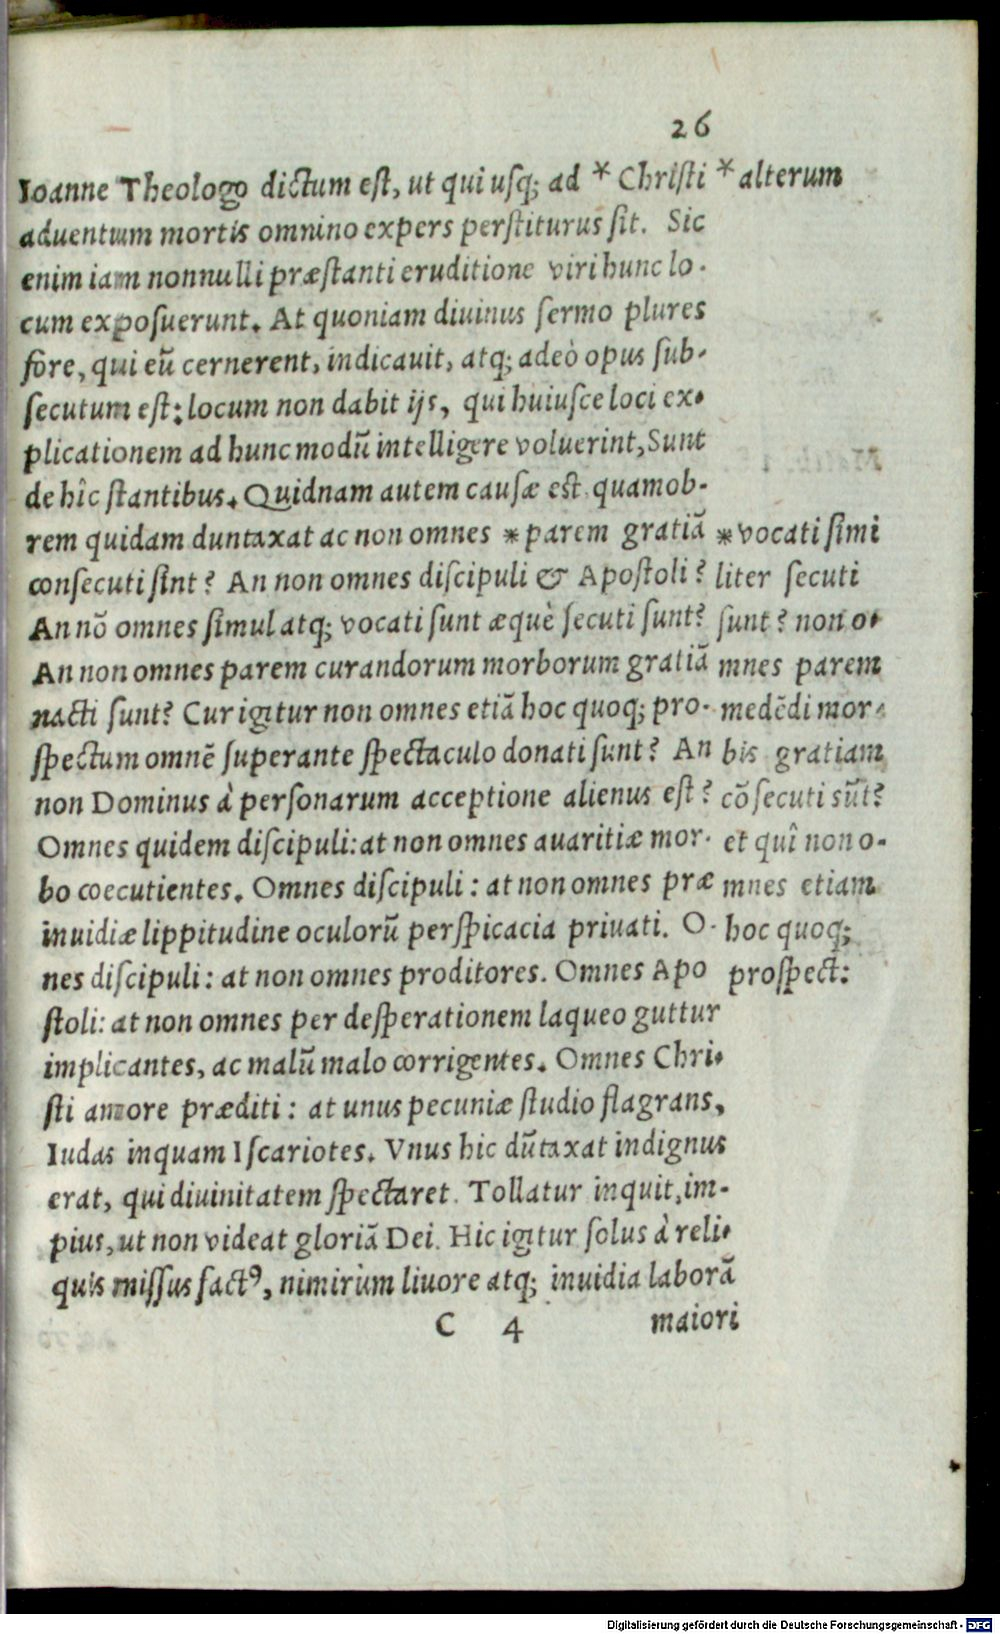 26
Ioanne Theologo dictum est, ut qui usq; ad * Christi
aduentum mortis omnino expers perstiturus sit. Sic
enim iam nonnulli præstanti eruditione viri hunc lo-
cum exposuerunt. At quoniam diuinus sermo plures
fore, qui eũ cernerent, indicauit, atq; adeò opus sub-
secutum est: locum non dabit ijs, qui huiusce loci ex-
plicationem ad hunc modũ intelligere voluerint, Sunt
de hîc stantibus. Quidnam autem causæ est quamob-
rem quidam duntaxat ac non omnes * parem gratiã
consecuti sint? An non omnes discipuli & Apostoli?
An nõ omnes simul atq; vocati sunt æquè secuti sunt?
An non omnes parem curandorum morborum gratiã
nacti sunt? Cur igitur non omnes etiã hoc quoq; pro-
spectum omnẽ superante spectaculo donati sunt? An
non Dominus à personarum acceptione alienus est?
Omnes quidem discipuli: at non omnes auaritiæ mor-
bo coecutientes. Omnes discipuli: at non omnes præ
inuidiæ lippitudine oculorũ perspicacia priuati. O-
nes discipuli: at non omnes proditores. Omnes Apo
stoli: at non omnes per desperationem laqueo guttur
implicantes, ac malũ malo corrigentes. Omnes Chri-
sti amore præditi: at unus pecuniæ studio flagrans,
Iudas inquam Iscariotes. Vnus hic dũtaxat indignus
erat, qui diuinitatem spectaret. Tollatur inquit, im-
pius, ut non videat gloriã Dei. Hic igitur solus à reli-
quis missus factꝰ, nimirùm liuore atq; inuidia laborã
C 4 maiori
* alterum
* vocati simi
liter secuti
sunt? non o-
mnes parem
medẽdi mor-
bis gratiam
cõsecuti sũt?
et quî non o-
mnes etiam
hoc quoq;
prospect:
Digitalisierung gefördert durch die Deutsche Forschungsgemeinschaft - DFG